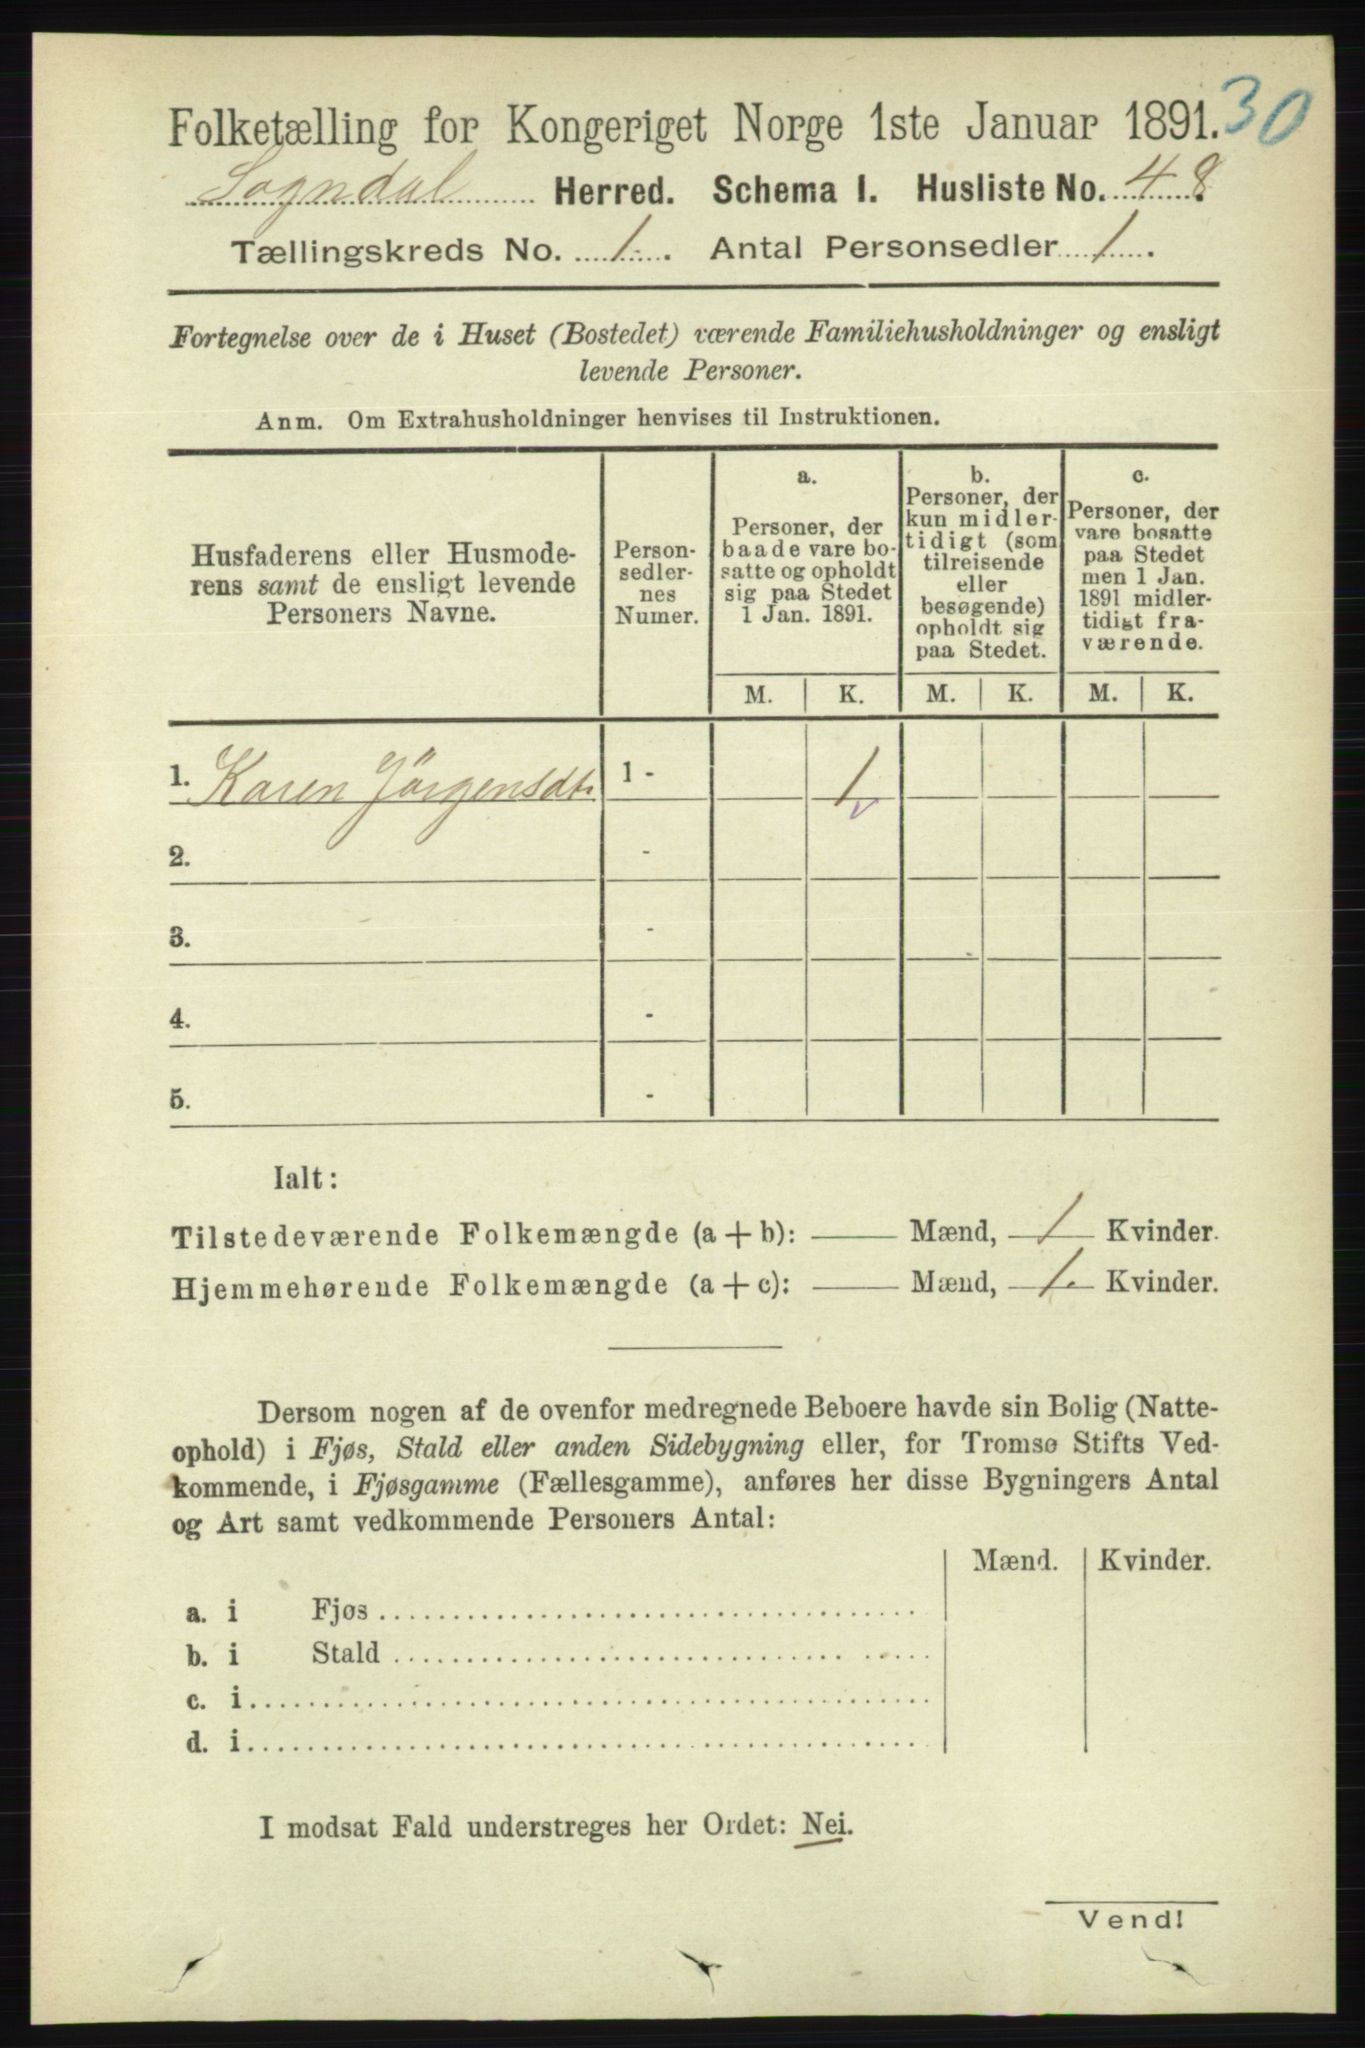 Folketælling for Kongeriget Norge 1ste Januar 1891. 30
Sogndal Herred. Schema I. Husliste No. 48.
Tællingskreds No. 1. Antal Personsedler 1.
Fortegnelse over de i Huset (Bostedet) værende Familiehusholdninger og ensligt
levende Personer.
Anm. Om Extrahusholdninger henvises til Instruktionen.
Husfaderens eller Husmode-
rens samt de ensligt levende
Personers Navne.
Person-
sedler-
nes
Numer.
a.
Personer, der
baade vare bo-
satte og opholdt
sig paa Stedet
1 Jan. 1891.
b.
Personer, der
kun midler-
tidigt (som
tilreisende
eller
besøgende)
opholdt sig
paa Stedet.
c.
Personer, der
vare bosatte
paa Stedet
men 1 Jan.
1891 midler-
tidigt fra-
værende.
M. K. M. K. M. K.
1. Karen Jörgensdt. 1 - 1
2. -
3. -
4. -
5. -
Ialt:
Tilstedeværende Folkemængde (a+b): — Mænd, 1 Kvinder.
Hjemmehørende Folkemængde (a+c): — Mænd, 1. Kvinder.
Dersom nogen af de ovenfor medregnede Beboere havde sin Bolig (Natte-
ophold) i Fjøs, Stald eller anden Sidebygning eller, for Tromsø Stifts Ved-
kommende, i Fjøsgamme (Fællesgamme), anføres her disse Bygningers Antal
og Art samt vedkommende Personers Antal:
Mænd. Kvinder.
a. i Fjøs
b. i Stald
c. i
d. i
I modsat Fald understreges her Ordet: Nei.
Vend!